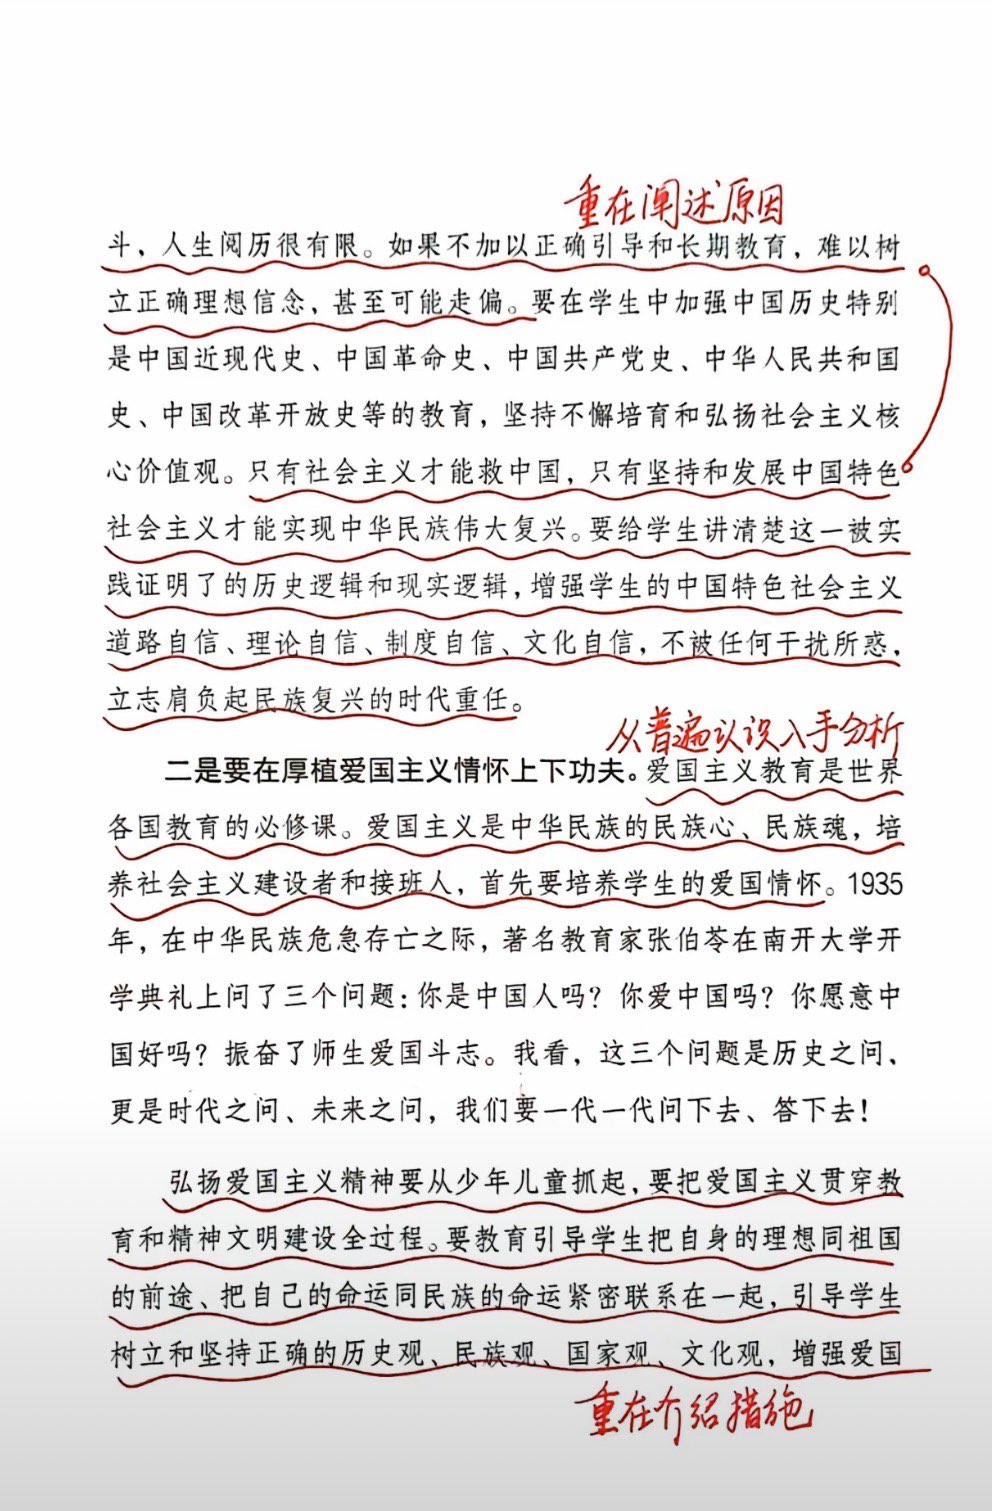 重在阐述原因
斗，人生阅历很有限。如果不加以正确引导和长期教育，难以树
立正确理想信念，甚至可能走偏。要在学生中加强中国历史特别
是中国近现代史、中国革命史、中国共产党史、中华人民共和国
史、中国改革开放史等的教育，坚持不懈培育和弘扬社会主义核
心价值观。只有社会主义才能救中国，只有坚持和发展中国特色
社会主义才能实现中华民族伟大复兴。要给学生讲清楚这一被实
践证明了的历史逻辑和现实逻辑，增强学生的中国特色社会主义
道路自信、理论自信、制度自信、文化自信，不被任何干扰所惑，
立志肩负起民族复兴的时代重任。
从普遍认识入手分析
二是要在厚植爱国主义情怀上下功夫。爱国主义教育是世界
各国教育的必修课。爱国主义是中华民族的民族心、民族魂，培
养社会主义建设者和接班人，首先要培养学生的爱国情怀。1935
年，在中华民族危急存亡之际，著名教育家张伯苓在南开大学开
学典礼上问了三个问题：你是中国人吗？你爱中国吗？你愿意中
国好吗？振奋了师生爱国斗志。我看，这三个问题是历史之问、
更是时代之问、未来之问，我们要一代一代问下去、答下去！
弘扬爱国主义精神要从少年儿童抓起，要把爱国主义贯穿教
育和精神文明建设全过程。要教育引导学生把自身的理想同祖国
的前途、把自己的命运同民族的命运紧密联系在一起，引导学生
树立和坚持正确的历史观、民族观、国家观、文化观，增强爱国
重在介绍措施